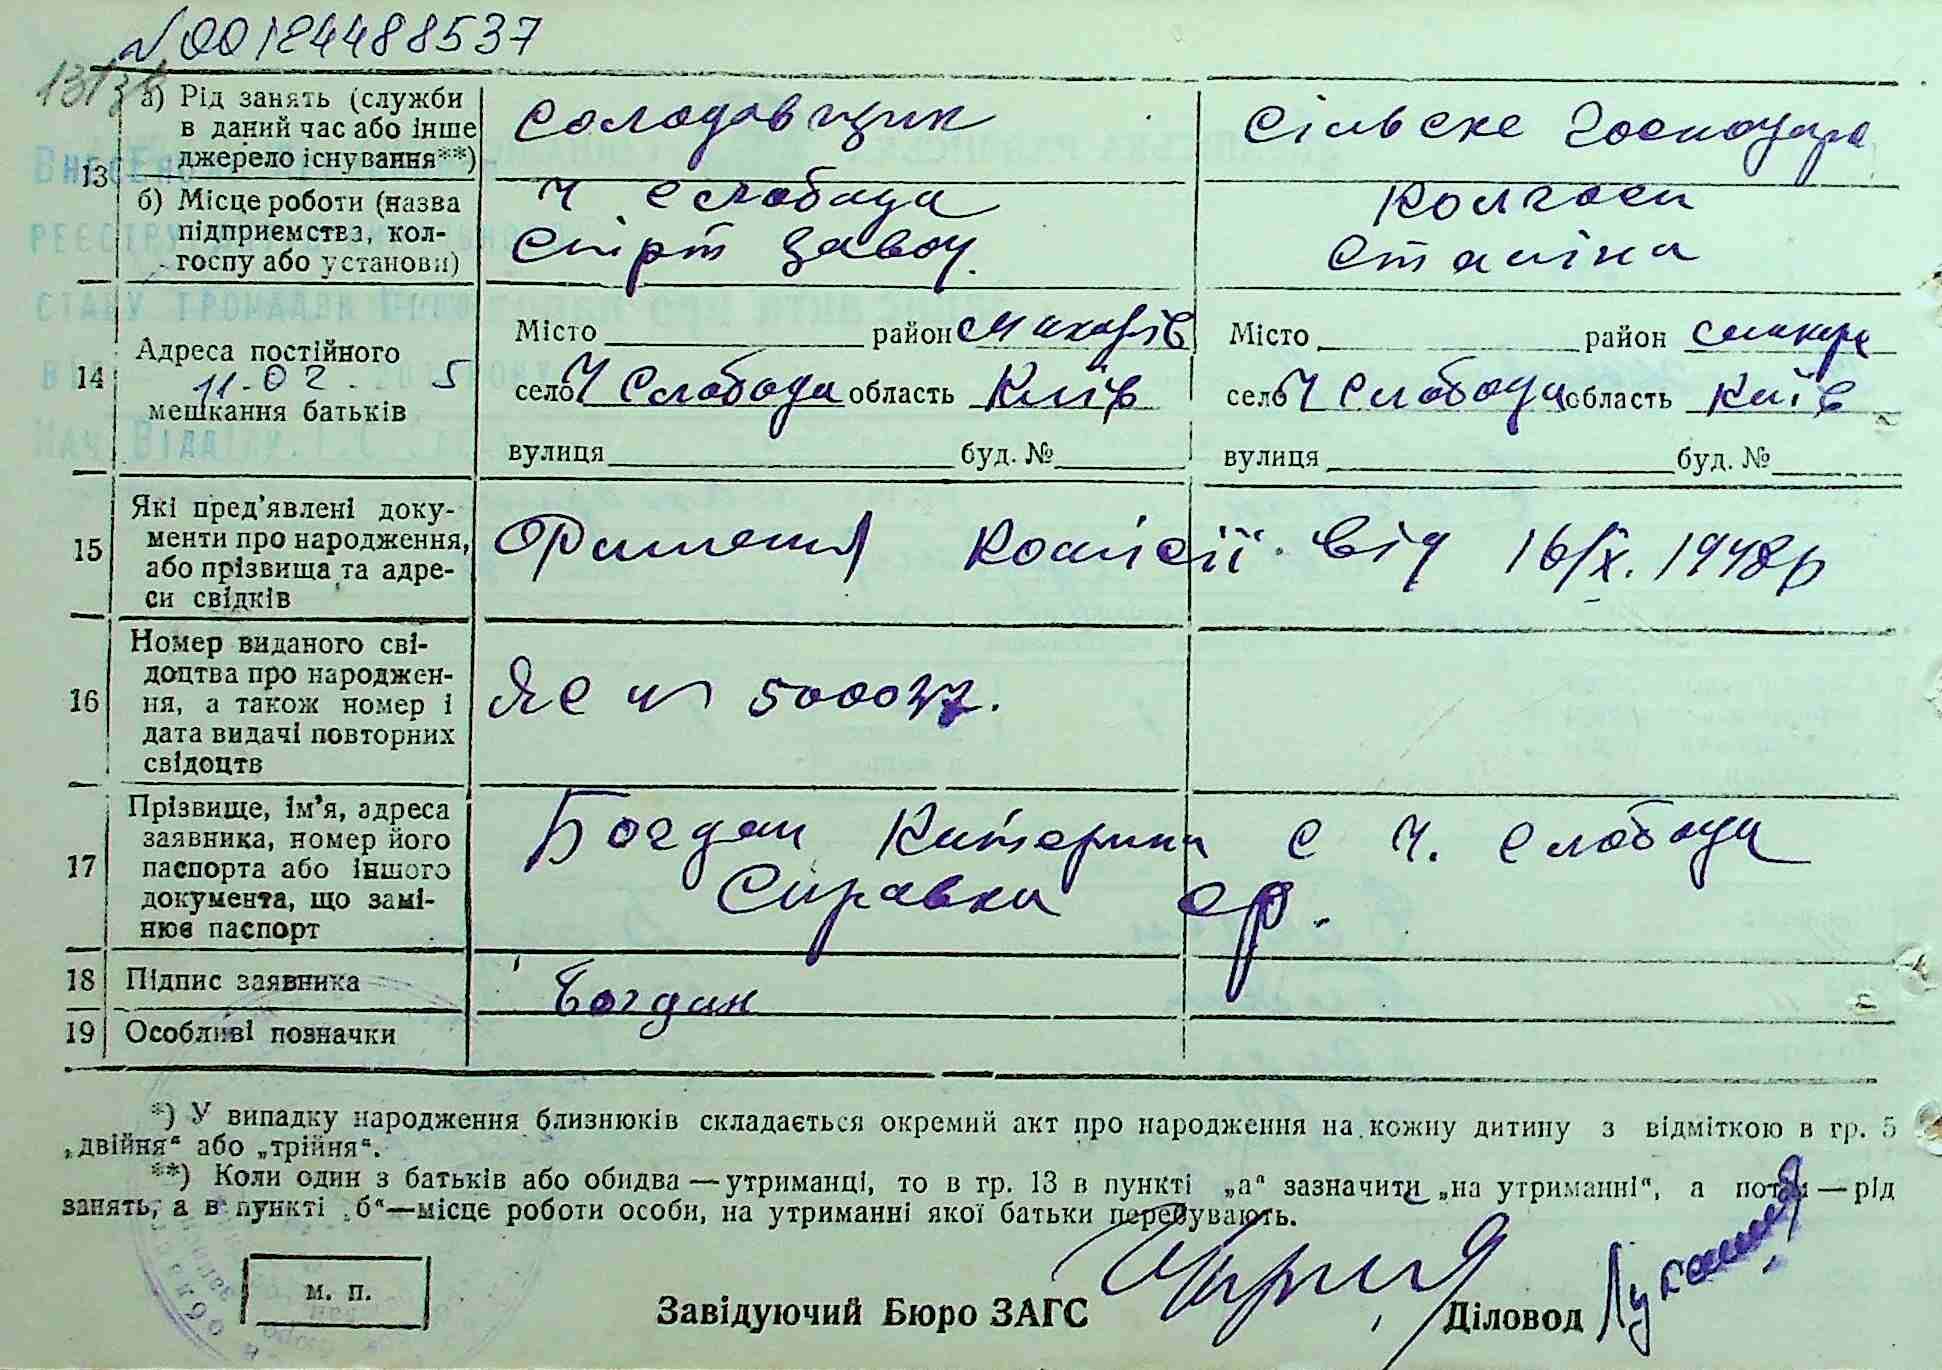 N 00124488537
13
а) Рід занять (служби
в даний час або інше
джерело існування**)
солодовщик
сільске господар
б) Місце роботи (назва
підприємства, кол-
госпу або установи)
Ч Слобода
спірт завод.
колгосп
Сталіна
14
Адреса постійного
мешкання батьків
11-02. 5
Місто район Макарів
село Ч Слобода область Київ
вулиця буд. №
Місто район Макарів
село Ч Слобода область Київ
вулиця буд. №
15
Які пред'явлені доку-
менти про народження,
або прізвища та адре-
си свідків
комісії від 16/X. 1948р
16
Номер виданого сві-
доцтва про народжен-
ня, а також номер і
дата видачі повторних
свідоцтв
ЯС № 500037.
17
Прізвище, ім'я, адреса
заявника, номер його
паспорта або іншого
документа, що замі-
нює паспорт
Богдан Катерина с Ч. Слобода
Справка ср.
18 Підпис заявника
Богдан
19 Особливі позначки
*) У випадку народження близнюків складається окремий акт про народження на кожну дитину з відміткою в гр. 5
„двійня“ або „трійня“.
**) Коли один з батьків або обидва — утриманці, то в гр. 13 в пункті „а“ зазначити „на утриманні“, а потім — рід
занять, а в пункті „б“—місце роботи особи, на утриманні якої батьки перебувають.
м. п.
Завідуючий Бюро ЗАГС
Діловод